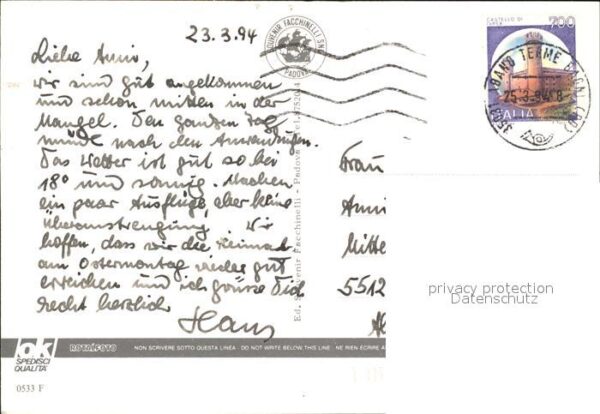 23.3.94
Liebe Anni,
wir sind gut angekommen
und schon mitten in der
Mangel. Den ganzen Tag
müde nach den Anwendungen.
Das Wetter ist gut so bei
18° und sonnig. Machen
ein paar Ausflüge, aber keine
Überanstrengung. Wir
hoffen, dass wir die Heimat
am Ostermontag wieder gut
erreichen und ich grüsse Dich
recht herzlich
Hans
SOUVENIR FACCHINELLI SNC
PADOVA
Ed. Souvenir Facchinelli - Padova
CASTELLO DI
700
ITALIA
35031 ABANO TERME
25.3.94 8
Frau
Anni
Mitte
5512
privacy protection
Datenschutz
ok
SPEDISCI
QUALITÀ
ROTALFOTO
NON SCRIVERE SOTTO QUESTA LINEA - DO NOT WRITE BELOW THIS LINE - NE RIEN ÉCRIRE A
0533 F